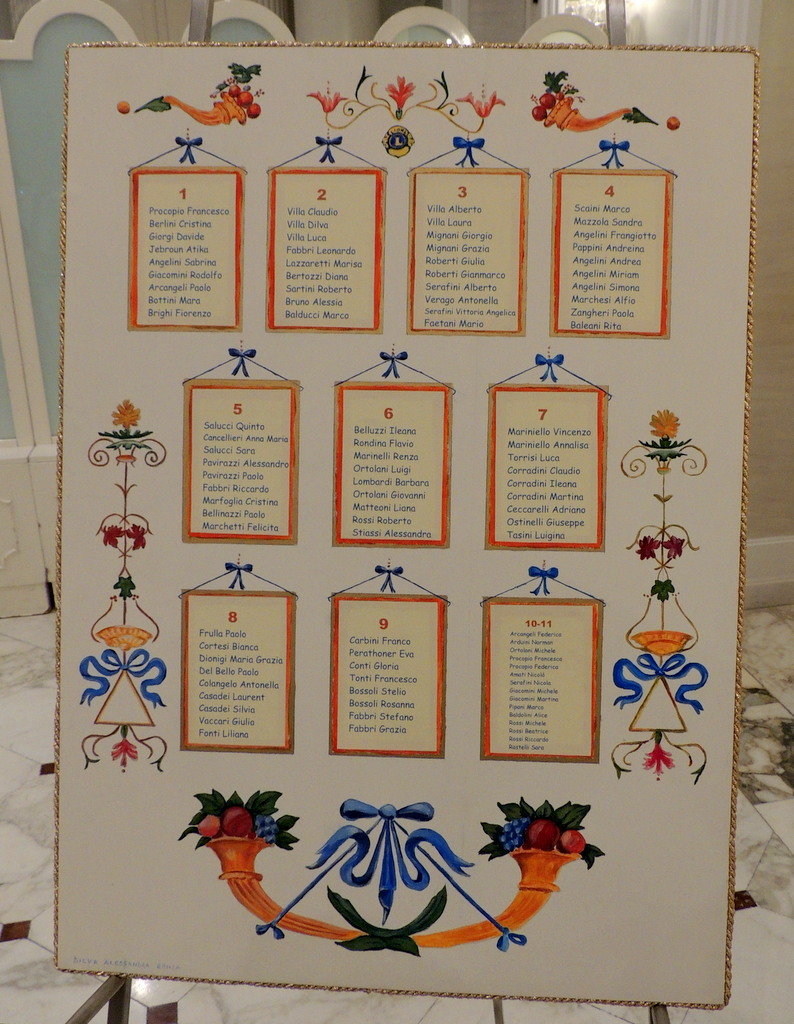 L
1
Procopio Francesco
Berlini Cristina
Giorgi Davide
Jebroun Atika
Angelini Sabrina
Giacomini Rodolfo
Arcangeli Paolo
Bottini Mara
Brighi Fiorenzo
2
Villa Claudio
Villa Dilva
Villa Luca
Fabbri Leonardo
Lazzaretti Marisa
Bertozzi Diana
Sartini Roberto
Bruno Alessia
Balducci Marco
3
Villa Alberto
Villa Laura
Mignani Giorgio
Mignani Grazia
Roberti Giulia
Roberti Gianmarco
Serafini Alberto
Verago Antonella
Serafini Vittoria Angelica
Faetani Mario
4
Scaini Marco
Mazzola Sandra
Angelini Frangiotto
Pappini Andreina
Angelini Andrea
Angelini Miriam
Angelini Simona
Marchesi Alfio
Zangheri Paola
Baleani Rita
5
Salucci Quinto
Cancellieri Anna Maria
Salucci Sara
Pavirazzi Alessandro
Pavirazzi Paolo
Fabbri Riccardo
Marfoglia Cristina
Bellinazzi Paolo
Marchetti Felicita
6
Belluzzi Ileana
Rondina Flavio
Marinelli Renza
Ortolani Luigi
Lombardi Barbara
Ortolani Giovanni
Matteoni Liana
Rossi Roberto
Stiassi Alessandra
7
Mariniello Vincenzo
Mariniello Annalisa
Torrisi Luca
Corradini Claudio
Corradini Ileana
Corradini Martina
Ceccarelli Adriano
Ostinelli Giuseppe
Tasini Luigina
8
Frulla Paolo
Cortesi Bianca
Dionigi Maria Grazia
Del Bello Paolo
Colangelo Antonella
Casadei Laurent
Casadei Silvia
Vaccari Giulio
Fonti Liliana
9
Carbini Franco
Perathoner Eva
Conti Gloria
Tonti Francesco
Bossoli Stelio
Bossoli Rosanna
Fabbri Stefano
Fabbri Grazia
10-11
Arcangeli Federico
Arduini Norman
Ortolani Michele
Procopio Francesca
Procopio Federica
Amati Nicolò
Serafini Nicola
Giacomini Michele
Giacomini Martina
Pipani Marco
Baldolini Alice
Rossi Michele
Rossi Beatrice
Rossi Riccardo
Rastelli Sara